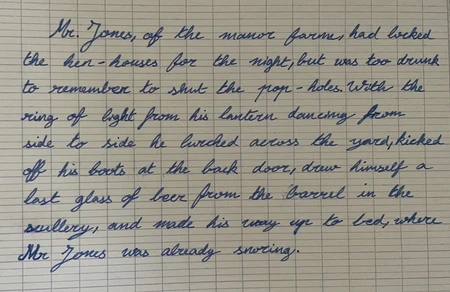 Mr. Jones, of the manor farme, had locked
the hen-houses for the night, but was too drunk
to remember to shut the pop-holes. With the
ring of light from his lantern dancing from
side to side he lurched across the yard, kicked
off his boots at the back door, drew himself a
last glass of beer from the barrel in the
scullery, and made his way up to bed, where
Mr Jones was already snoring.